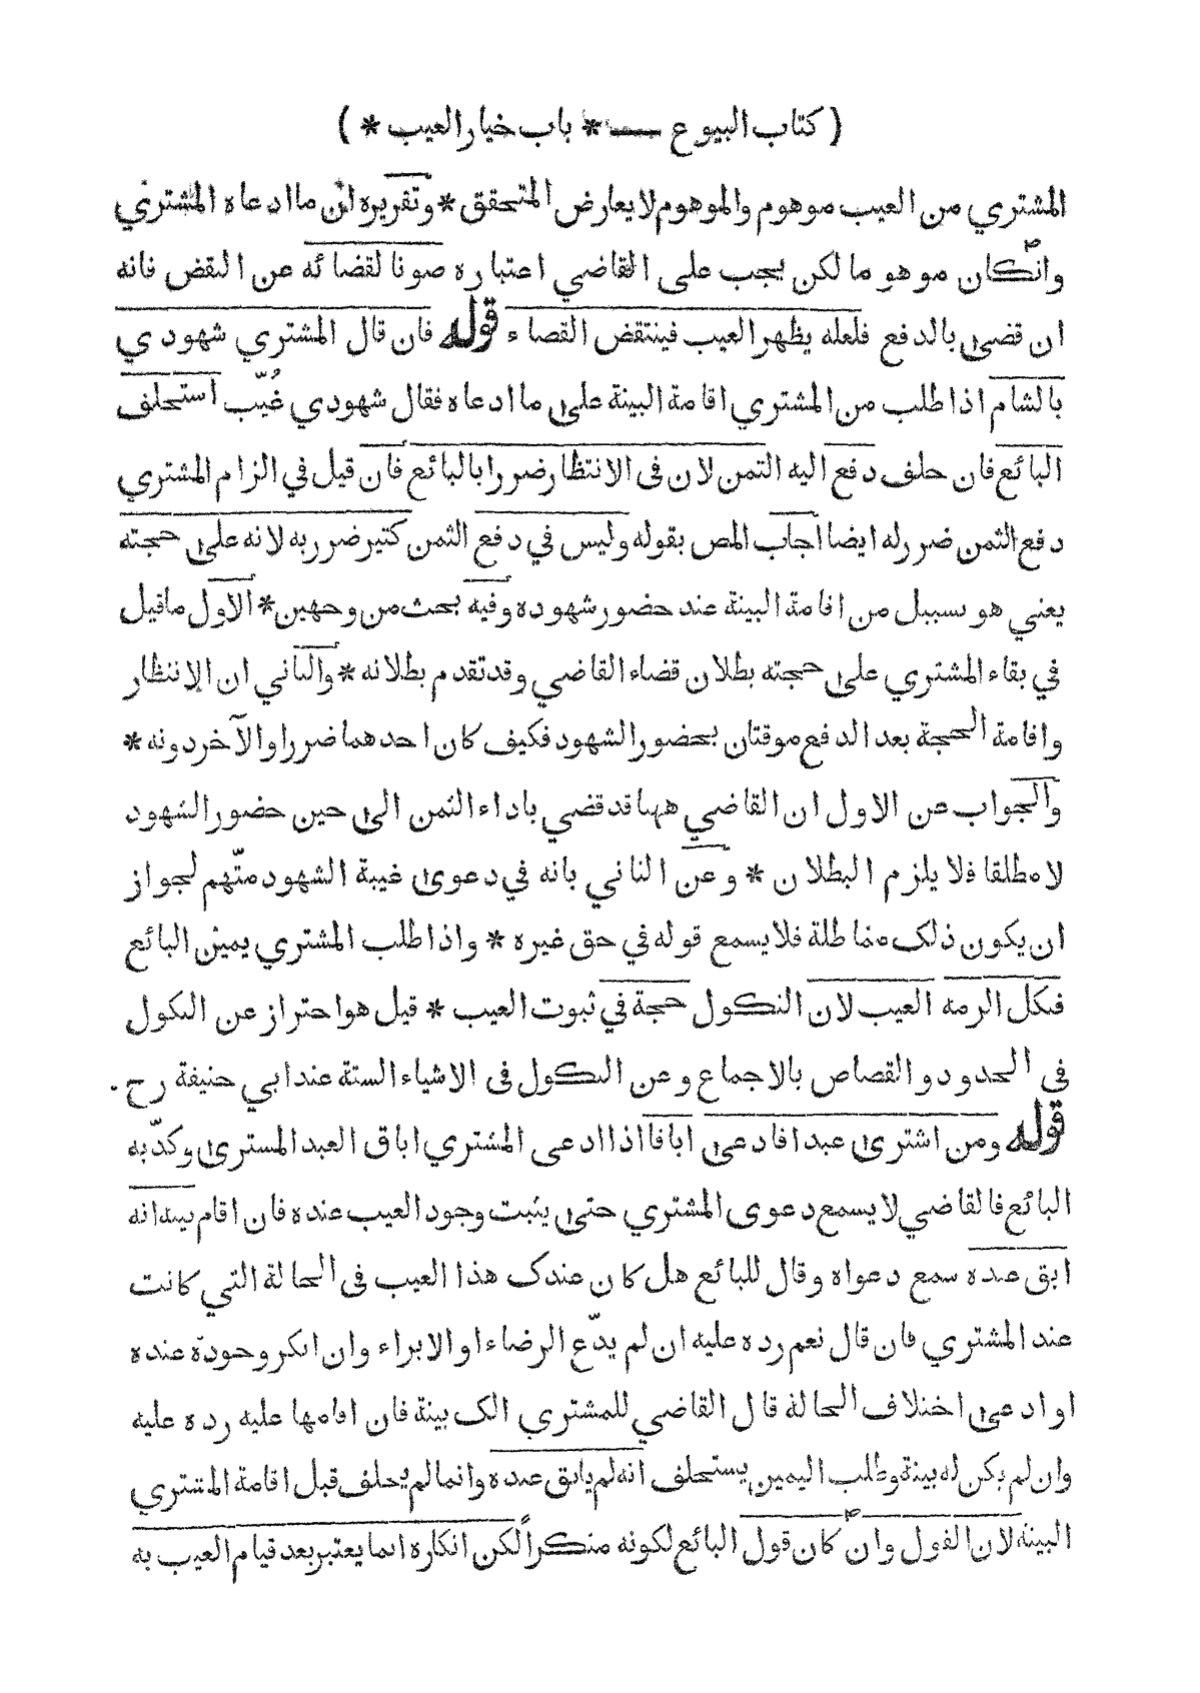 ( كتاب البيوع — * باب خيار العيب * )
المشتري من العيب موهوم والموهوم لا يعارض المتحقق * وتقريره ان ما ادعاه المشتري
وان كان موهوما لكن يجب على القاضي اعتباره صونا لقضائه عن النقض فانه
ان قضى بالدفع فلعله يظهر العيب فينتقض القضاء قوله فان قال المشتري شهودي
بالشام اذا طلب من المشتري اقامة البينة على ما ادعاه فقال شهودي غُيّب استحلف
البائع فان حلف دفع اليه الثمن لان فى الانتظار ضررا بالبائع فان قيل في الزام المشتري
دفع الثمن ضرر له ايضا اجاب المص بقوله وليس في دفع الثمن كثير ضرر به لانه على حجته
يعني هو بسبيل من اقامة البينة عند حضور شهوده وفيه بحث من وجهين * الاول ما قيل
في بقاء المشتري على حجته بطلان قضاء القاضي وقد تقدم بطلانه * والثاني ان الانتظار
واقامة الحجة بعد الدفع موقتان بحضور الشهود فكيف كان احدهما ضررا والآخر دونه *
والجواب عن الاول ان القاضي ههنا قد قضي باداء الثمن الى حين حضور الشهود
لا مطلقا فلا يلزم البطلان * وعن الثاني بانه في دعوى غيبة الشهود متّهم لجواز
ان يكون ذلك مماطلة فلا يسمع قوله في حق غيره * واذا طلب المشتري يمين البائع
فنكل الزمه العيب لان النكول حجة في ثبوت العيب * قيل هو احتراز عن النكول
فى الحدود والقصاص بالاجماع وعن النكول فى الاشياء الستة عند ابي حنيفة رح .
قوله ومن اشترى عبدا فادعى اباقا اذا ادعى المشتري اباق العبد المشترى وكذّبه
البائع فالقاضي لا يسمع دعوى المشتري حتى يثبت وجود العيب عنده فان اقام بينة انه
ابق عنده سمع دعواه وقال للبائع هل كان عندك هذا العيب فى الحالة التي كانت
عند المشتري فان قال نعم رده عليه ان لم يدّع الرضاء او الابراء وان انكر وجوده عنده
او ادعى اختلاف الحالة قال القاضي للمشتري الك بينة فان اقامها عليه رده عليه
وان لم يكن له بينة وطلب اليمين يستحلف انه لم يابق عنده وانما لم يحلف قبل اقامة المشتري
البينة لان القول وان كان قول البائع لكونه منكراً لكن انكاره انما يعتبر بعد قيام العيب به